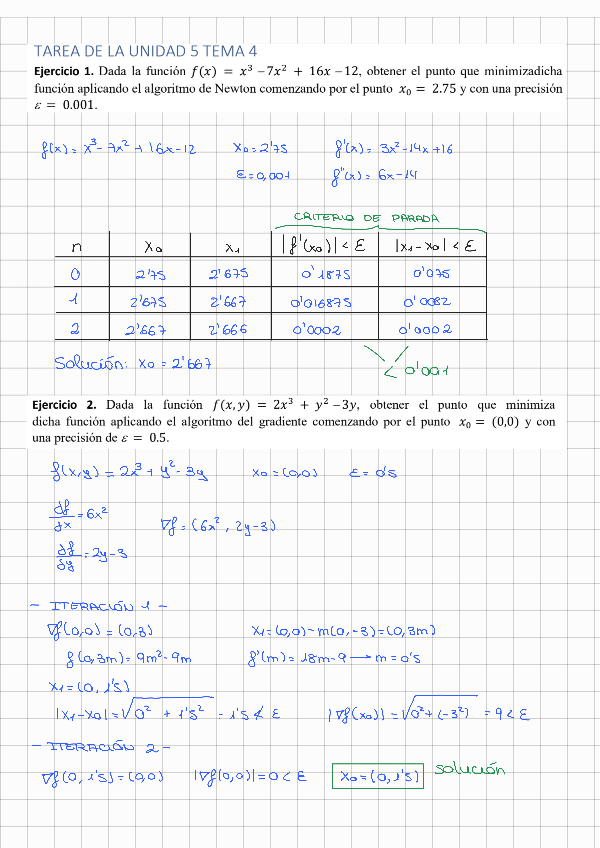 TAREA DE LA UNIDAD 5 TEMA 4
Ejercicio 1. Dada la función f(x) = x³ – 7x² + 16x – 12, obtener el punto que minimizadicha
función aplicando el algoritmo de Newton comenzando por el punto x₀ = 2.75 y con una precisión
ε = 0.001.
f(x) = x³ - 7x² + 16x - 12 x₀ = 2'75 f'(x) = 3x² - 14x + 16
ε = 0,001 f''(x) = 6x - 14
CRITERIO DE PARADA
n x₀ x₁ |f'(x₀)| < ε |x₁ - x₀| < ε
0 2'75 2'675 0'1875 0'075
1 2'675 2'667 0'016875 0'0082
2 2'667 2'666 0'0002 0'0002
Solución: x₀ = 2'667 < 0'001
Ejercicio 2. Dada la función f(x, y) = 2x³ + y² – 3y, obtener el punto que minimiza
dicha función aplicando el algoritmo del gradiente comenzando por el punto x₀ = (0,0) y con
una precisión de ε = 0.5.
f(x,y) = 2x³ + y² - 3y x₀ = (0,0) ε = 0'5
df/dx = 6x²
∇f = (6x², 2y-3)
df/dy = 2y - 3
- ITERACIÓN 1 -
∇f(0,0) = (0,3) x₁ = (0,0) - m(0,-3) = (0,3m)
f(0,3m) = 9m² - 9m f'(m) = 18m - 9 → m = 0'5
x₁ = (0, 1'5)
|x₁ - x₀| = √0² + 1'5² = 1'5 ≮ ε |∇f(x₀)| = √0² + (-3²) = 9 < ε
- ITERACIÓN 2 -
∇f(0, 1'5) = (0,0) |∇f(0,0)| = 0 < ε x₀ = (0, 1'5) solución